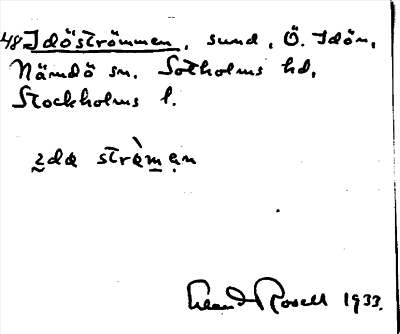 48 Idöströmmen, sund, Ö. Idön,
Nämdö sn. Sotholms hd,
Stockholms l.
Erland Rosell 1933.